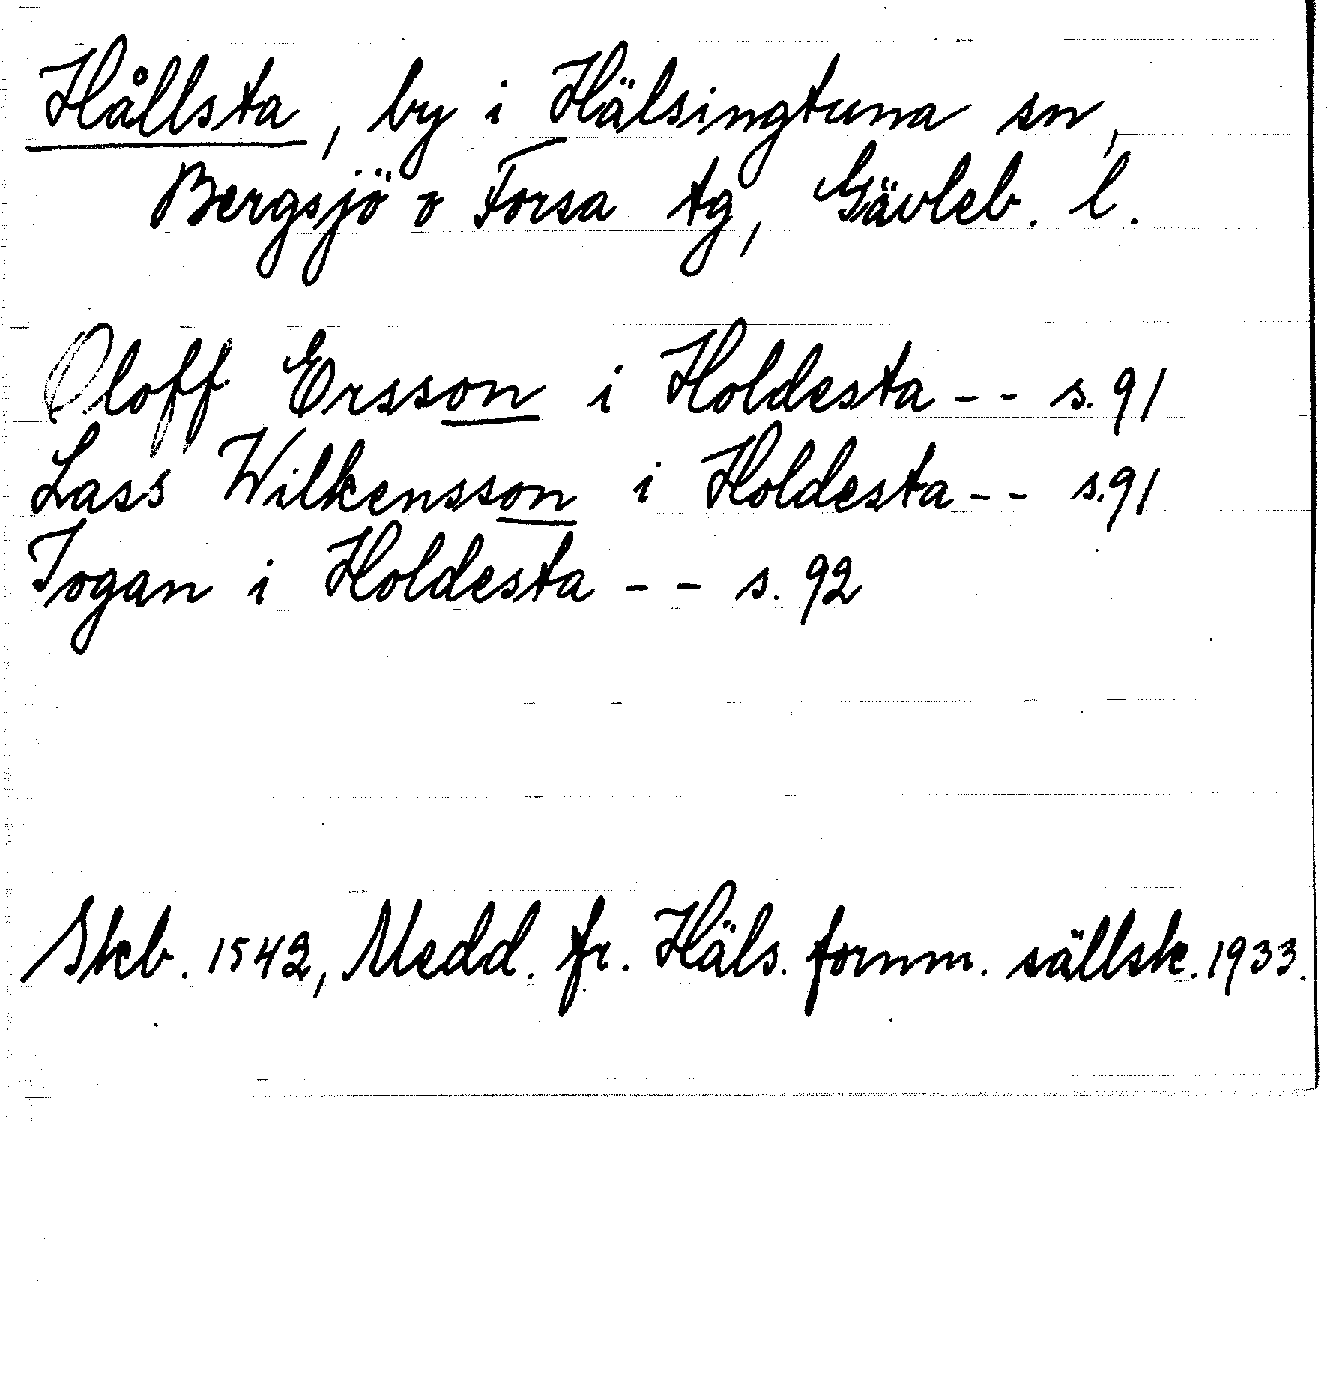 Hållsta, by i Hälsingtuna sn,
Bergsjö o Forsa tg, Gävleb. l.
Oloff Ersson i Holdesta -- s. 91
Lass Wilkensson i Holdesta -- s. 91
Jogan i Holdesta -- s. 92
Skb. 1542, Medd. fr. Häls. fornm. sällsk. 1933.